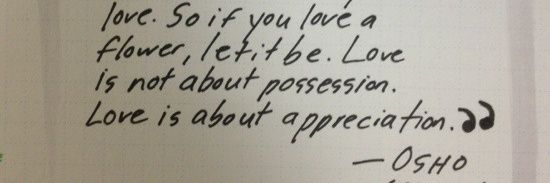 love. So if you love a
flower, let it be. Love
is not about possession.
Love is about appreciation.”
— OSHO